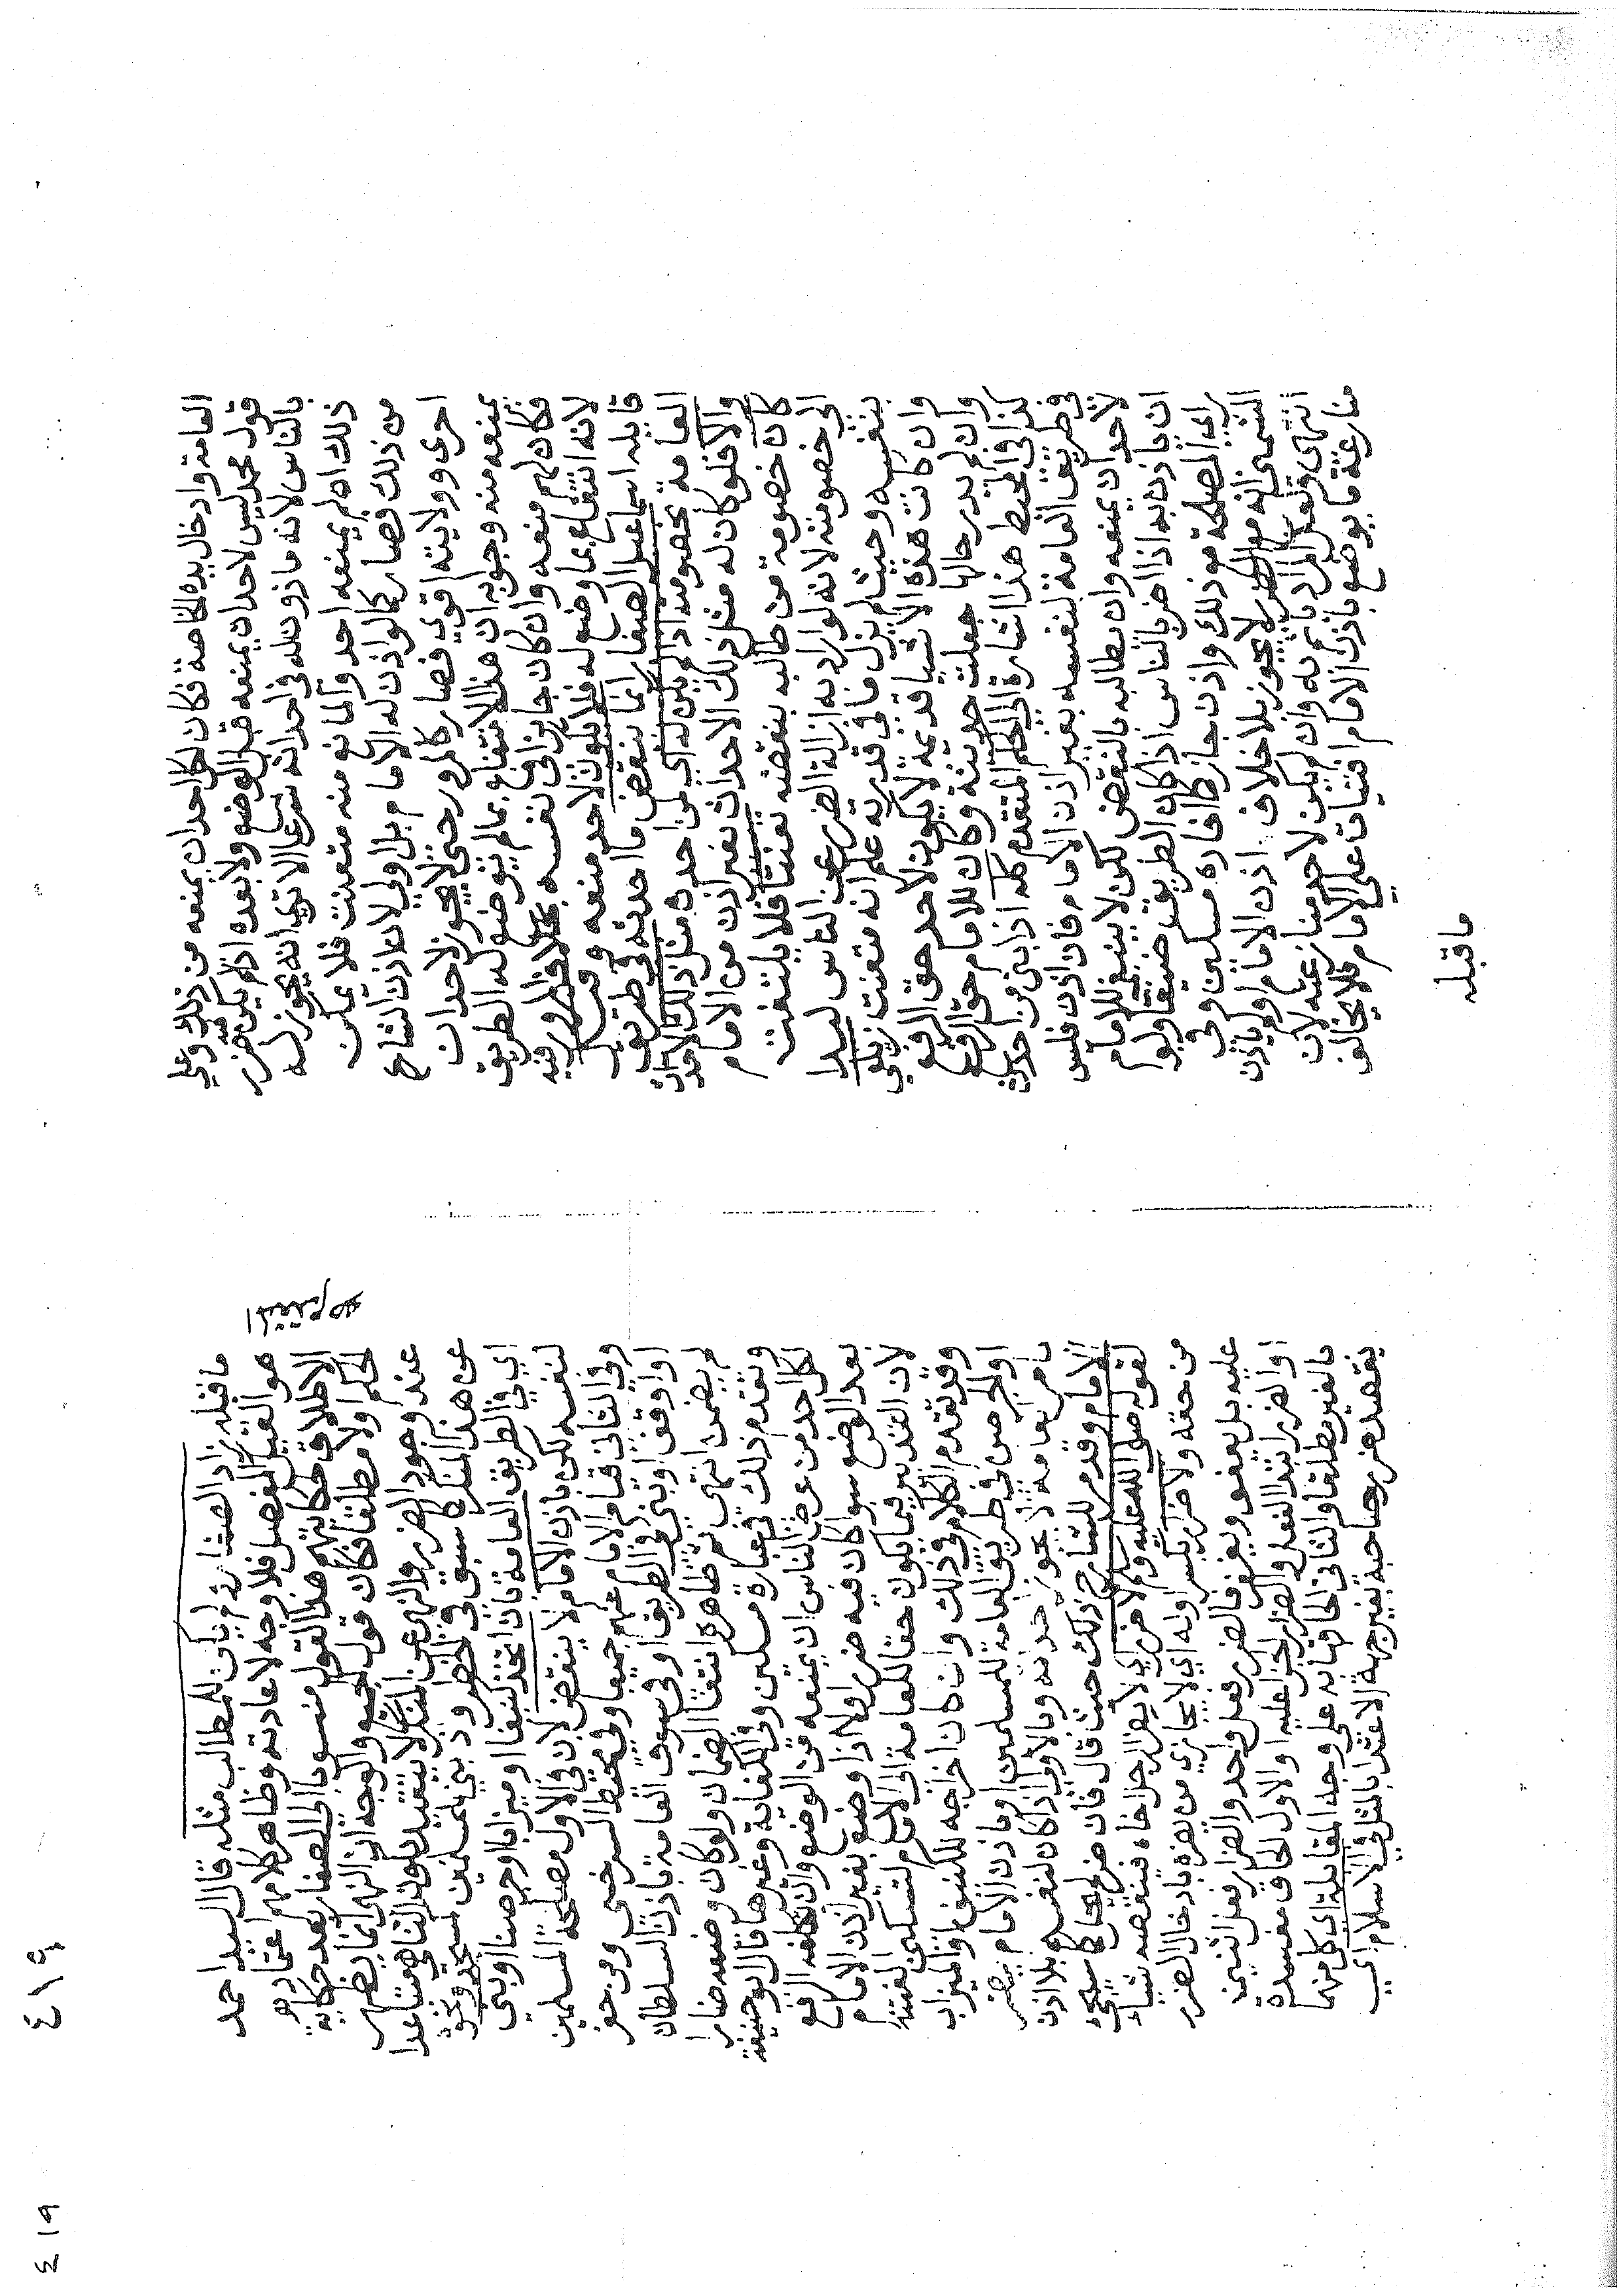 العامة وادخال يده الخاصة فكان لكل احد ان يمنعه من ذلك وعلى
قول محمد ليس لاحد ان يمنعه قبل الوضع ولا بعده اذا لم يكن فيه ضرر
بالناس لانه ماذون له في احداثه شرعا الا ترى انه يجوز له
ذلك ان لم يمنعه احد والمانع منه متعنت فلا يمكن
من ذلك فصار كما لو اذن له الامام بل اولى لان اذن الشارع
احرى وولايته اقوى فصار كالمرور حتى لا يجوز لاحد ان
يمنعه منه وجوابه ان هذا الانتفاع بما لم يوضع له الطريق
فكان لهم منعه وان كان جائزا في نفسه بخلاف المرور فيه
لانه انتفاع بما وضع له فلا يكون لاحد منعه وقيل
قايله اسماعيل الصفار انما ينقض ما احدثه في طريق
العامة بخصومته اذا لم يكن له اي لمن احدث مثل ذلك الاحداث
والا فلو كان له مثل ذلك الاحداث بغير اذن من الامام
كان خصومة من طالبه بنقضه تعنتا فلا يلتفت
الى خصومته لانه لو اراد به ازالة الضرر عن الناس لبدا
بنفسه وحيث لم يزل ما في قدرته علم انه متعنت زيلعي
وان كانت هذه الاشيا قديمة لا يكون لاحد حق الرفع
وان لم يدر حالها جعلت حديثة وكان للامام حق الرفع
كذا في المحيط هذا اشارة الى الحكم المتقدم كله اذا بنى من احدث
في طريق العامة لنفسه بغير اذن الامام فان اذن فليس
لاحد ان يمنعه وان يطالبه بالنقض لكن لا ينبغي للامام
ان ياذن به اذا اضر بالناس اذا كان الطريق ضيقا ولو
راى المصلحة مع ذلك واذن جاز كما افاده مسكين وفي
الشمني انه مع الضرر لا يجوز بلا خلاف اذن الامام او لم ياذن
انتهى ولعل المراد ياثم به وان لم يكن لاحد منازعته لان
منازعة ما يوضع باذن الامام افتيات على الامام فلا يخالف
ما قبله
ما قبله زاد الصفار ولم ياتي للمطالب مثله قال السيد احمد
هو القيل المفصل فلا وجه لاعادته وظاهر كلامهم اعتماده
الاطلاق حكايتهم هذا القول منسوبا الى الصفار بعد حكاية
الحكم اولا مطلقا فكان قول المجيب والوجه ان النهي انما يظهر
عند وجود الضرر والنهي عن المنكر لا يتقيد بكون الناهي متباعدا
عن هذا المنكر كما سبق في الحظر وبنى للمسلمين كمسجد ونحوه
اي بنى في الطريق العامة بان اتخذ كنيفا او ميزابا او جرصنا او بنى
لنفسه لكن باذن الامام لا ينقض لان في الاول مصلحة المسلمين
وفي الثاني قيام الامام عنهم جميعا وفي محيط السرخسي ومن حفر
او اوقف او بنى في الطريق او في سوق العامة باذن السلطان
لم يضمن انتهى ظاهره انتفا الضمان ولو كان وضعه ضارا
وتقدم ذلك في عبارة مسكين وفي الكفاية وغيرها قال ابو حنيفة
لكل احد من عرض الناس ان يمنعه من الوضع وان يكلفه الرفع
بعد الوضع سوا كان فيه ضرر اولا اذا وضع بغير اذن الامام
لان التدبير فيما يكون حقا للعامة الى الامام لتسكين الفتنة
وقد تقدم الكلام في ذلك وان كان اخراجه للكنيف او الميزاب
او الجرصن في طريق العامة للمسلمين او باذن الامام
يضر بالعامة لا يجوز احداثه وبالاولى اذا كان لنفسه بلا اذن
الامام وقدم للشارح ذلك حيث قال فان ضر لم يحل كما سيجيء
لقوله صلى الله عليه وسلم لا ضرر اي لا يضر الرجل اخاه فينقصه شياء
من حقه ولا ضرار بكسر اوله اي لا يجازي من يضره بادخال الضرر
عليه بل يعفو ويغفر فالضرر فعل واحد والضرار فعل اثنين
او الضرر ابتدا الفعل والضرار الجزا عليه او الاول الحاق مفسدة
بالغير مطلقا والثاني الحاقها به على وجه المقابلة اي كل منهما
يقصد ضرر صاحبه بغير جهة الاعتدا بالمثل في الاسلام اي
٤١٩
٤١٩